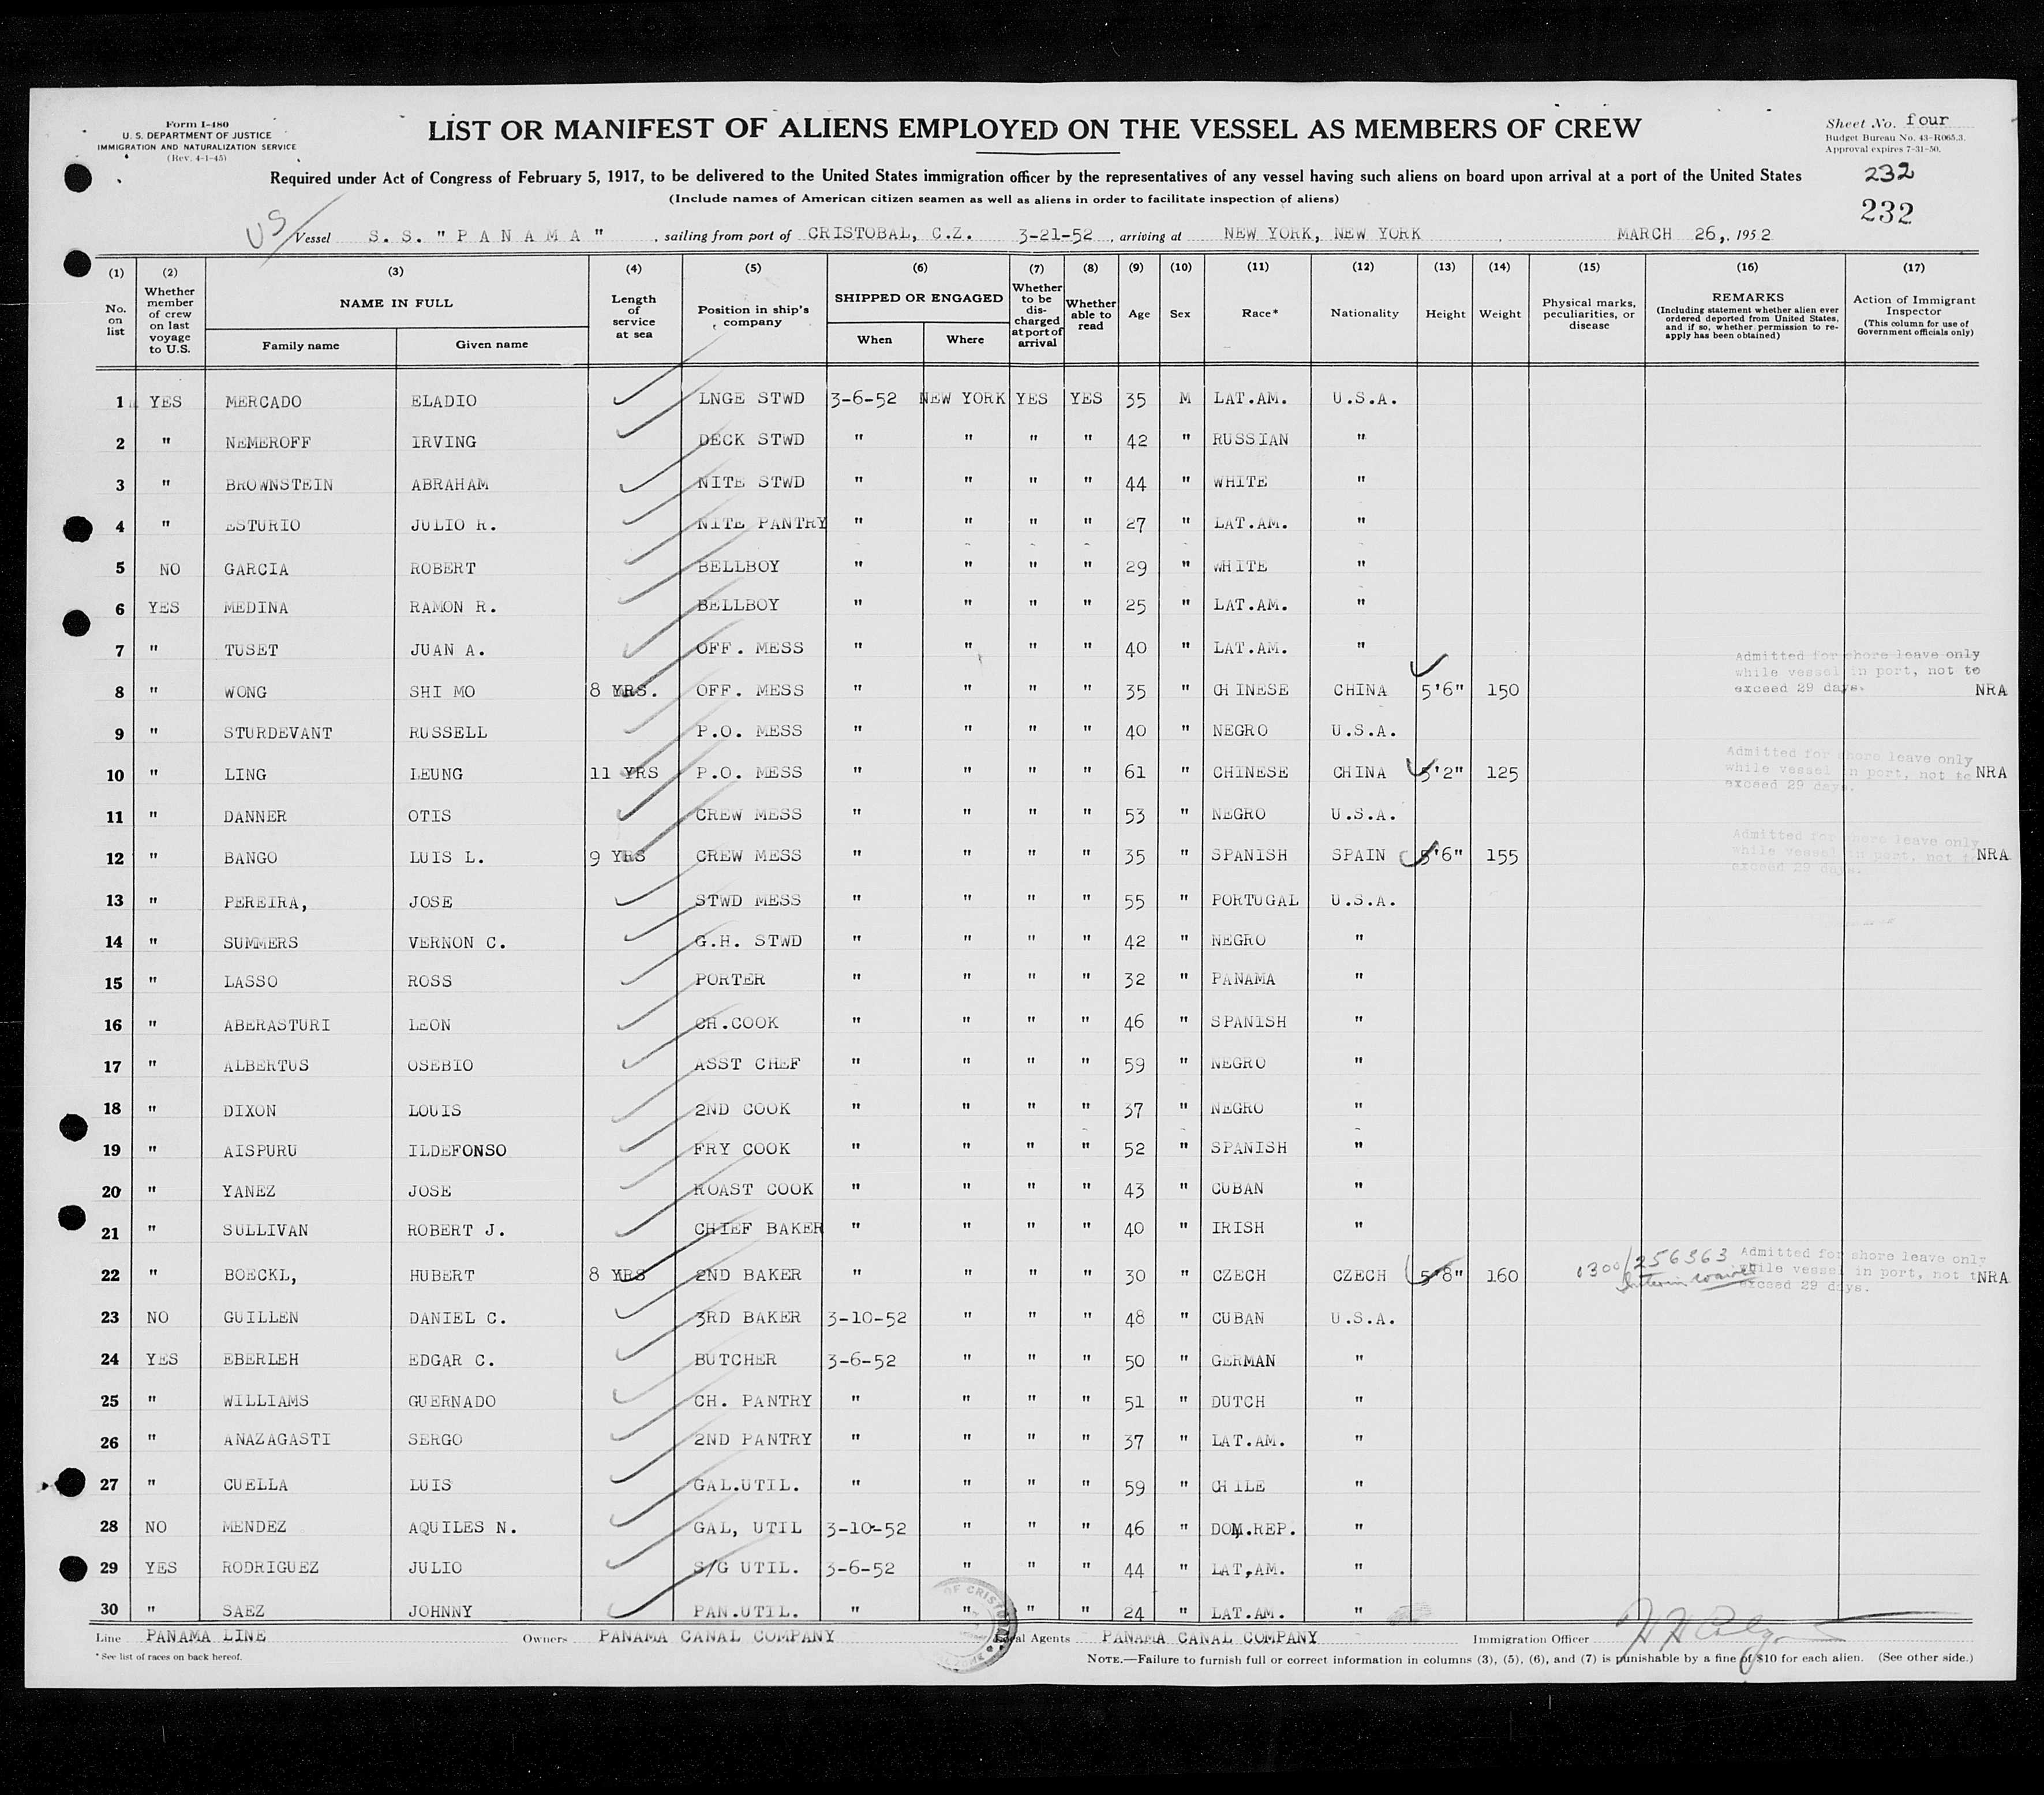 Form I-480
U. S. DEPARTMENT OF JUSTICE
IMMIGRATION AND NATURALIZATION SERVICE
(Rev. 4-1-45)
LIST OR MANIFEST OF ALIENS EMPLOYED ON THE VESSEL AS MEMBERS OF CREW
Sheet No. four
Budget Bureau No. 43-R065.3.
Approval expires 7-31-50.
Required under Act of Congress of February 5, 1917, to be delivered to the United States immigration officer by the representatives of any vessel having such aliens on board upon arrival at a port of the United States
232
(Include names of American citizen seamen as well as aliens in order to facilitate inspection of aliens)
232
US Vessel S. S. " P A N A M A " , sailing from port of CRISTOBAL, C.Z. 3-21-52 , arriving at NEW YORK, NEW YORK , MARCH 26,, 1952
(1) No. on list (2) Whether member of crew on last voyage to U.S. (3) NAME IN FULL Family name Given name (4) Length of service at sea (5) Position in ship's company (6) SHIPPED OR ENGAGED When Where (7) Whether to be discharged at port of arrival (8) Whether able to read (9) Age (10) Sex (11) Race* (12) Nationality (13) Height (14) Weight (15) Physical marks, peculiarities, or disease (16) REMARKS (Including statement whether alien ever ordered deported from United States, and if so, whether permission to reapply has been obtained) (17) Action of Immigrant Inspector (This column for use of Government officials only)
1 YES MERCADO ELADIO LNGE STWD 3-6-52 NEW YORK YES YES 35 M LAT.AM. U.S.A.
2 " NEMEROFF IRVING DECK STWD " " " " 42 " RUSSIAN "
3 " BROWNSTEIN ABRAHAM NITE STWD " " " " 44 " WHITE "
4 " ESTURIO JULIO R. NITE PANTRY " " " " 27 " LAT.AM. "
5 NO GARCIA ROBERT BELLBOY " " " " 29 " WHITE "
6 YES MEDINA RAMON R. BELLBOY " " " " 25 " LAT.AM. "
7 " TUSET JUAN A. OFF. MESS " " " " 40 " LAT.AM. "
8 " WONG SHI MO 8 YRS. OFF. MESS " " " " 35 " CHINESE CHINA 5'6" 150 Admitted for shore leave only while vessel in port, not to exceed 29 days. NRA
9 " STURDEVANT RUSSELL P.O. MESS " " " " 40 " NEGRO U.S.A.
10 " LING LEUNG 11 YRS P.O. MESS " " " " 61 " CHINESE CHINA 5'2" 125 Admitted for shore leave only while vessel in port, not to exceed 29 days. NRA
11 " DANNER OTIS CREW MESS " " " " 53 " NEGRO U.S.A.
12 " BANGO LUIS L. 9 YRS CREW MESS " " " " 35 " SPANISH SPAIN 5'6" 155 Admitted for shore leave only while vessel in port, not to exceed 29 days. NRA
13 " PEREIRA, JOSE STWD MESS " " " " 55 " PORTUGAL U.S.A.
14 " SUMMERS VERNON C. G.H. STWD " " " " 42 " NEGRO "
15 " LASSO ROSS PORTER " " " " 32 " PANAMA "
16 " ABERASTURI LEON CH.COOK " " " " 46 " SPANISH "
17 " ALBERTUS OSEBIO ASST CHEF " " " " 59 " NEGRO "
18 " DIXON LOUIS 2ND COOK " " " " 37 " NEGRO "
19 " AISPURU ILDEFONSO FRY COOK " " " " 52 " SPANISH "
20 " YANEZ JOSE ROAST COOK " " " " 43 " CUBAN "
21 " SULLIVAN ROBERT J. CHIEF BAKER " " " " 40 " IRISH "
22 " BOECKL, HUBERT 8 YRS 2ND BAKER " " " " 30 " CZECH CZECH 5'8" 160 0300/256363 Interim waiver Admitted for shore leave only while vessel in port, not t exceed 29 days. NRA
23 NO GUILLEN DANIEL C. 3RD BAKER 3-10-52 " " " 48 " CUBAN U.S.A.
24 YES EBERLEH EDGAR C. BUTCHER 3-6-52 " " " 50 " GERMAN "
25 " WILLIAMS GUERNADO CH. PANTRY " " " " 51 " DUTCH "
26 " ANAZAGASTI SERGO 2ND PANTRY " " " " 37 " LAT.AM. "
27 " CUELLA LUIS GAL.UTIL. " " " " 59 " CHILE "
28 NO MENDEZ AQUILES N. GAL, UTIL 3-10-52 " " " 46 " DOM.REP. "
29 YES RODRIGUEZ JULIO S/G UTIL. 3-6-52 " " " 44 " LAT,AM. "
30 " SAEZ JOHNNY PAN.UTIL. " " " " 24 " LAT.AM. "
Line PANAMA LINE Owners PANAMA CANAL COMPANY Local Agents PANAMA CANAL COMPANY Immigration Officer
* See list of races on back hereof.
NOTE.—Failure to furnish full or correct information in columns (3), (5), (6), and (7) is punishable by a fine of $10 for each alien. (See other side.)
OF CRISTOBAL